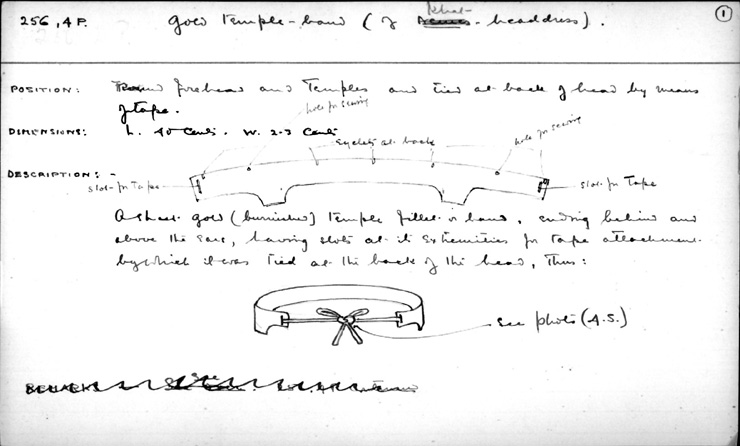 256, 4 P. Gold temple-band (of Khat- headdress). 1
POSITION: Round forehead and Temples and tied at back of head by means
of tape.
hole for sewing
hole for sewing
DIMENSIONS: L. 40 Cents. W. 2-3 Cents
eyelets at back
DESCRIPTION:-
slot for Tape
slot for Tape
A sheet gold (burnished) temple fillet or band, ending behind and
above the ears, having slots at its extremities for tape attachment
by which it was tied at the back of the head, thus:
see photo (A.S.)
REMARKS